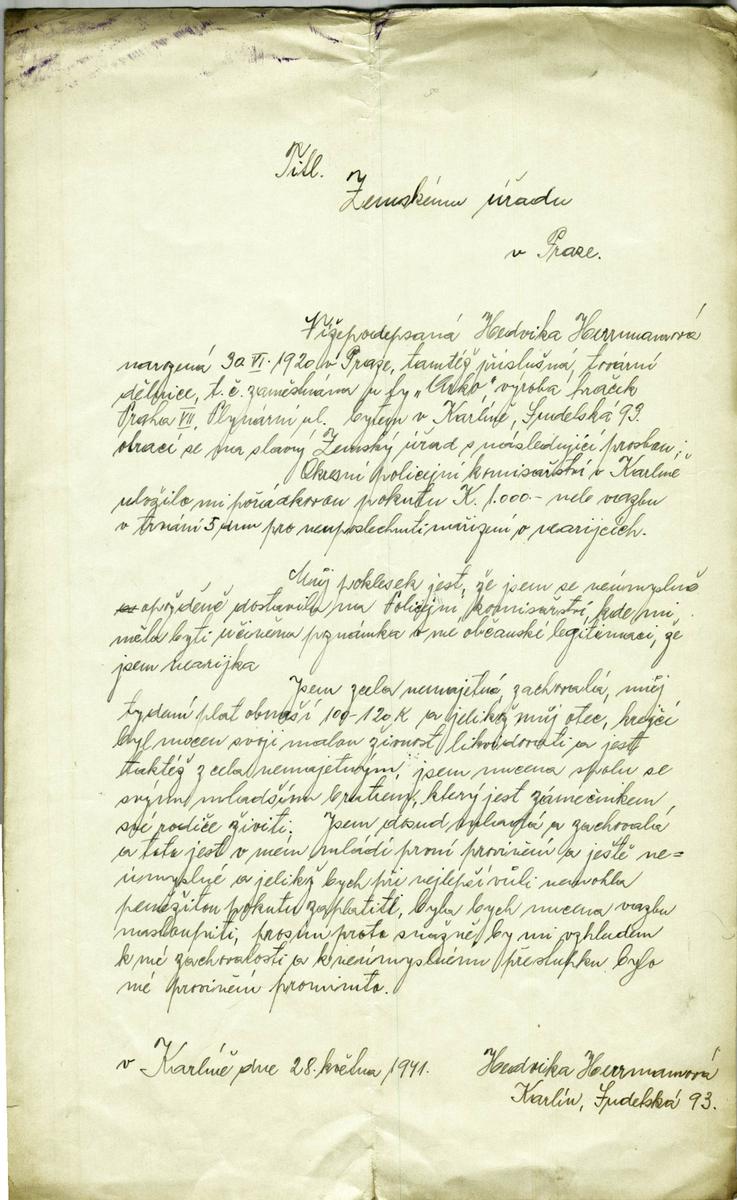 Titl.
Zemskému úřadu
v Praze.
Nížepodepsaná Hedvika Herrmannová
narozená 30 VI. 1920 v Praze, tamtéž příslušná, tovární
dělnice, t. č. zaměstnána u fy „Arko“, výroba hraček
Praha VII, Plynární ul. bytem v Karlíně, Judelská 93.
obrací se na slavný Zemský úřad s následující prosbou;
Okresní policejní komisařství v Karlíně
uložilo mi pořádkovou pokutu K. 1.000.- nebo vazbu
v trvání 5 dnů pro neuposlechnutí nařízení o nearijcích.
Můj poklesek jest, že jsem se neúmyslně
opožděně dostavila na Policejní komisařství, kde mi
měla býti učiněna poznámka v mé občanské legitimaci, že
jsem nearijka
Jsem zcela nemajetná, zachovalá, můj
týdení plat obnáší 100-120 K a jelikož můj otec, krejčí
byl nucen svoji malou živnost likvidovati a jest
taktéž zcela nemajetným, jsem nucena spolu se
svým mladším bratrem, který jest zámečníkem
své rodiče živiti. Jsem dosud mladá a zachovalá
a toto jest v mém mládí první provinění a ještě ne=
úmyslné a jelikož bych při nejlepší vůli nemohla
peněžitou pokutu zaplatiti, byla bych nucena vazbu
nastoupiti, prosím proto snažně, by mi vzhledem
k mé zachovalosti a k neúmyslnému přestupku bylo
mé provinění prominuto.
v Karlíně dne 28. května 1941.
Hedvika Herrmannová
Karlín, Judelská 93.